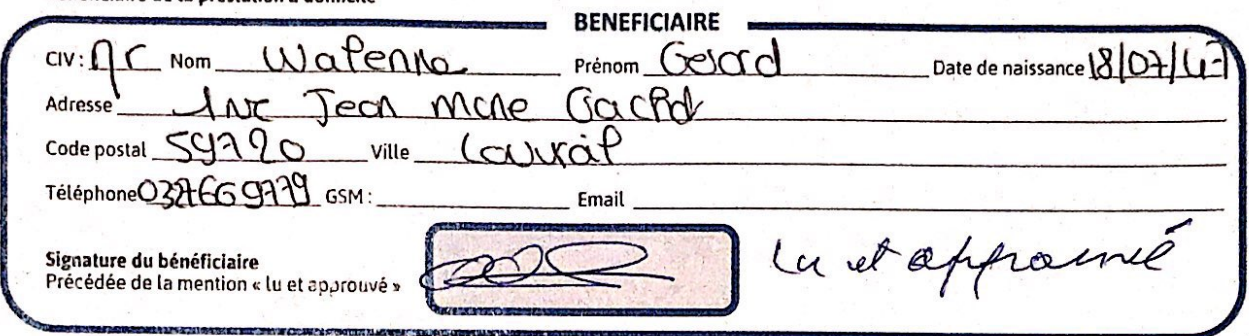 BENEFICIAIRE
CIV : Mr Nom Watenne Prénom Gerard Date de naissance 18/07/47
Adresse 1 rue Jean Marie
Code postal 59720 Ville Louvroil
Téléphone 0327669779 GSM : Email
Signature du bénéficiaire
Précédée de la mention « lu et approuvé »
Lu et approuvé